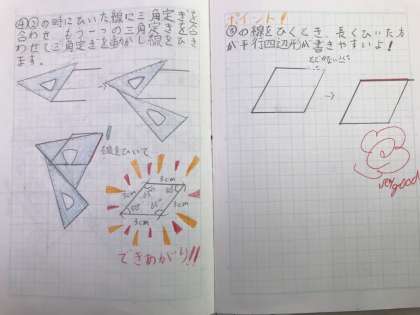 ④③の時にひいた線に三角定ぎを
合わせ、もう一つの三角定ぎを合
わせて三角定ぎを動かし線をひき
ます。
線をひいて
3cm
3cm
3cm
3cm
できあがり!!
ポイント!
の線をひくとき、長くひいた方
が平行四辺形が書きやすいよ!
→
→
very good